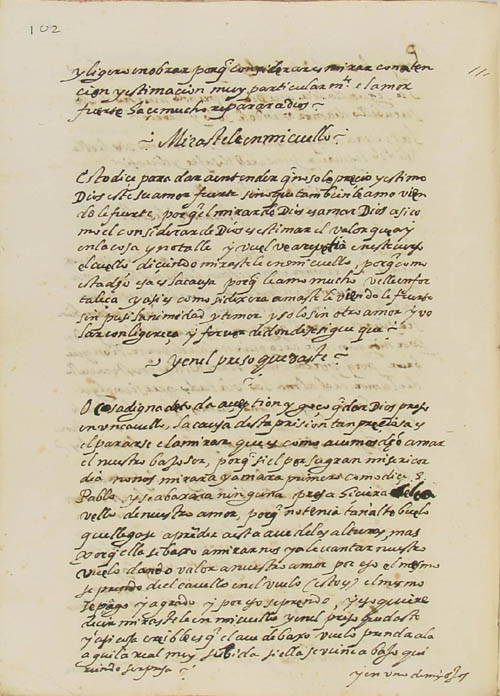 102
y ligero en obrar porq̃ considerar es mirar con aten
cion y estimacion muy particular mte el amor
fuerte hace mucho reparar a dios
Miraste le en mi cuello
Esto dice para dar a entender q̃ no solo precio y estimo
Dios este su amor fuerte sino que tambien le amo vien
do le fuerte, porq̃ el mirar Dios es amar Dios asi co
mo el considerar de Dios es estimar el valor que ay
en la cosa y notalle y vuelve a repetir en este verso
el cuello diciendo miraste le en mi cuello, porq̃ como
esta djo esa es la causa porq̃ le amo mucho velle en for
taleça y asi es como si dixera amaste le viendo le fuerte
sin pusilanimidad y temor y solo sin otro amor y vo
lar con ligereça y fervor de donde se sigue que
y en el preso quedaste
O cosa digna de toda acception y goço q̃dar Dios preso
en un cavello, la causa desta prision tan preciosa y
el pararse el a mirar que es como avemos djo amar
el nuestro bajo ser, porq̃ si el por su gran misericor
dia no nos mirara y amara primero como dice S.
Pablo y se abaxara ninguna presa hiciera el ca
vello de nuestro amor, porq̃ no tenia tan alto buelo
que llegase a prẽder a esta ave de las alturas, mas
porq̃ ella se baxo a mirarnos y a levantar nuestro
vuelo dando valor a nuestro amor por eso el mesmo
se prendo del cavello en el vuelo (esto es) el mismo
se pago y agrado y por eso se prendo y eso quiere
decir miraste le en mi cuello y en el preso q̃daste
y asi cosa creible es q̃ el ave de baxo vuelo prenda a la
aguila real muy subida si ella se viene a baxo qui
riendo ser presa
y en uno de mis ojos